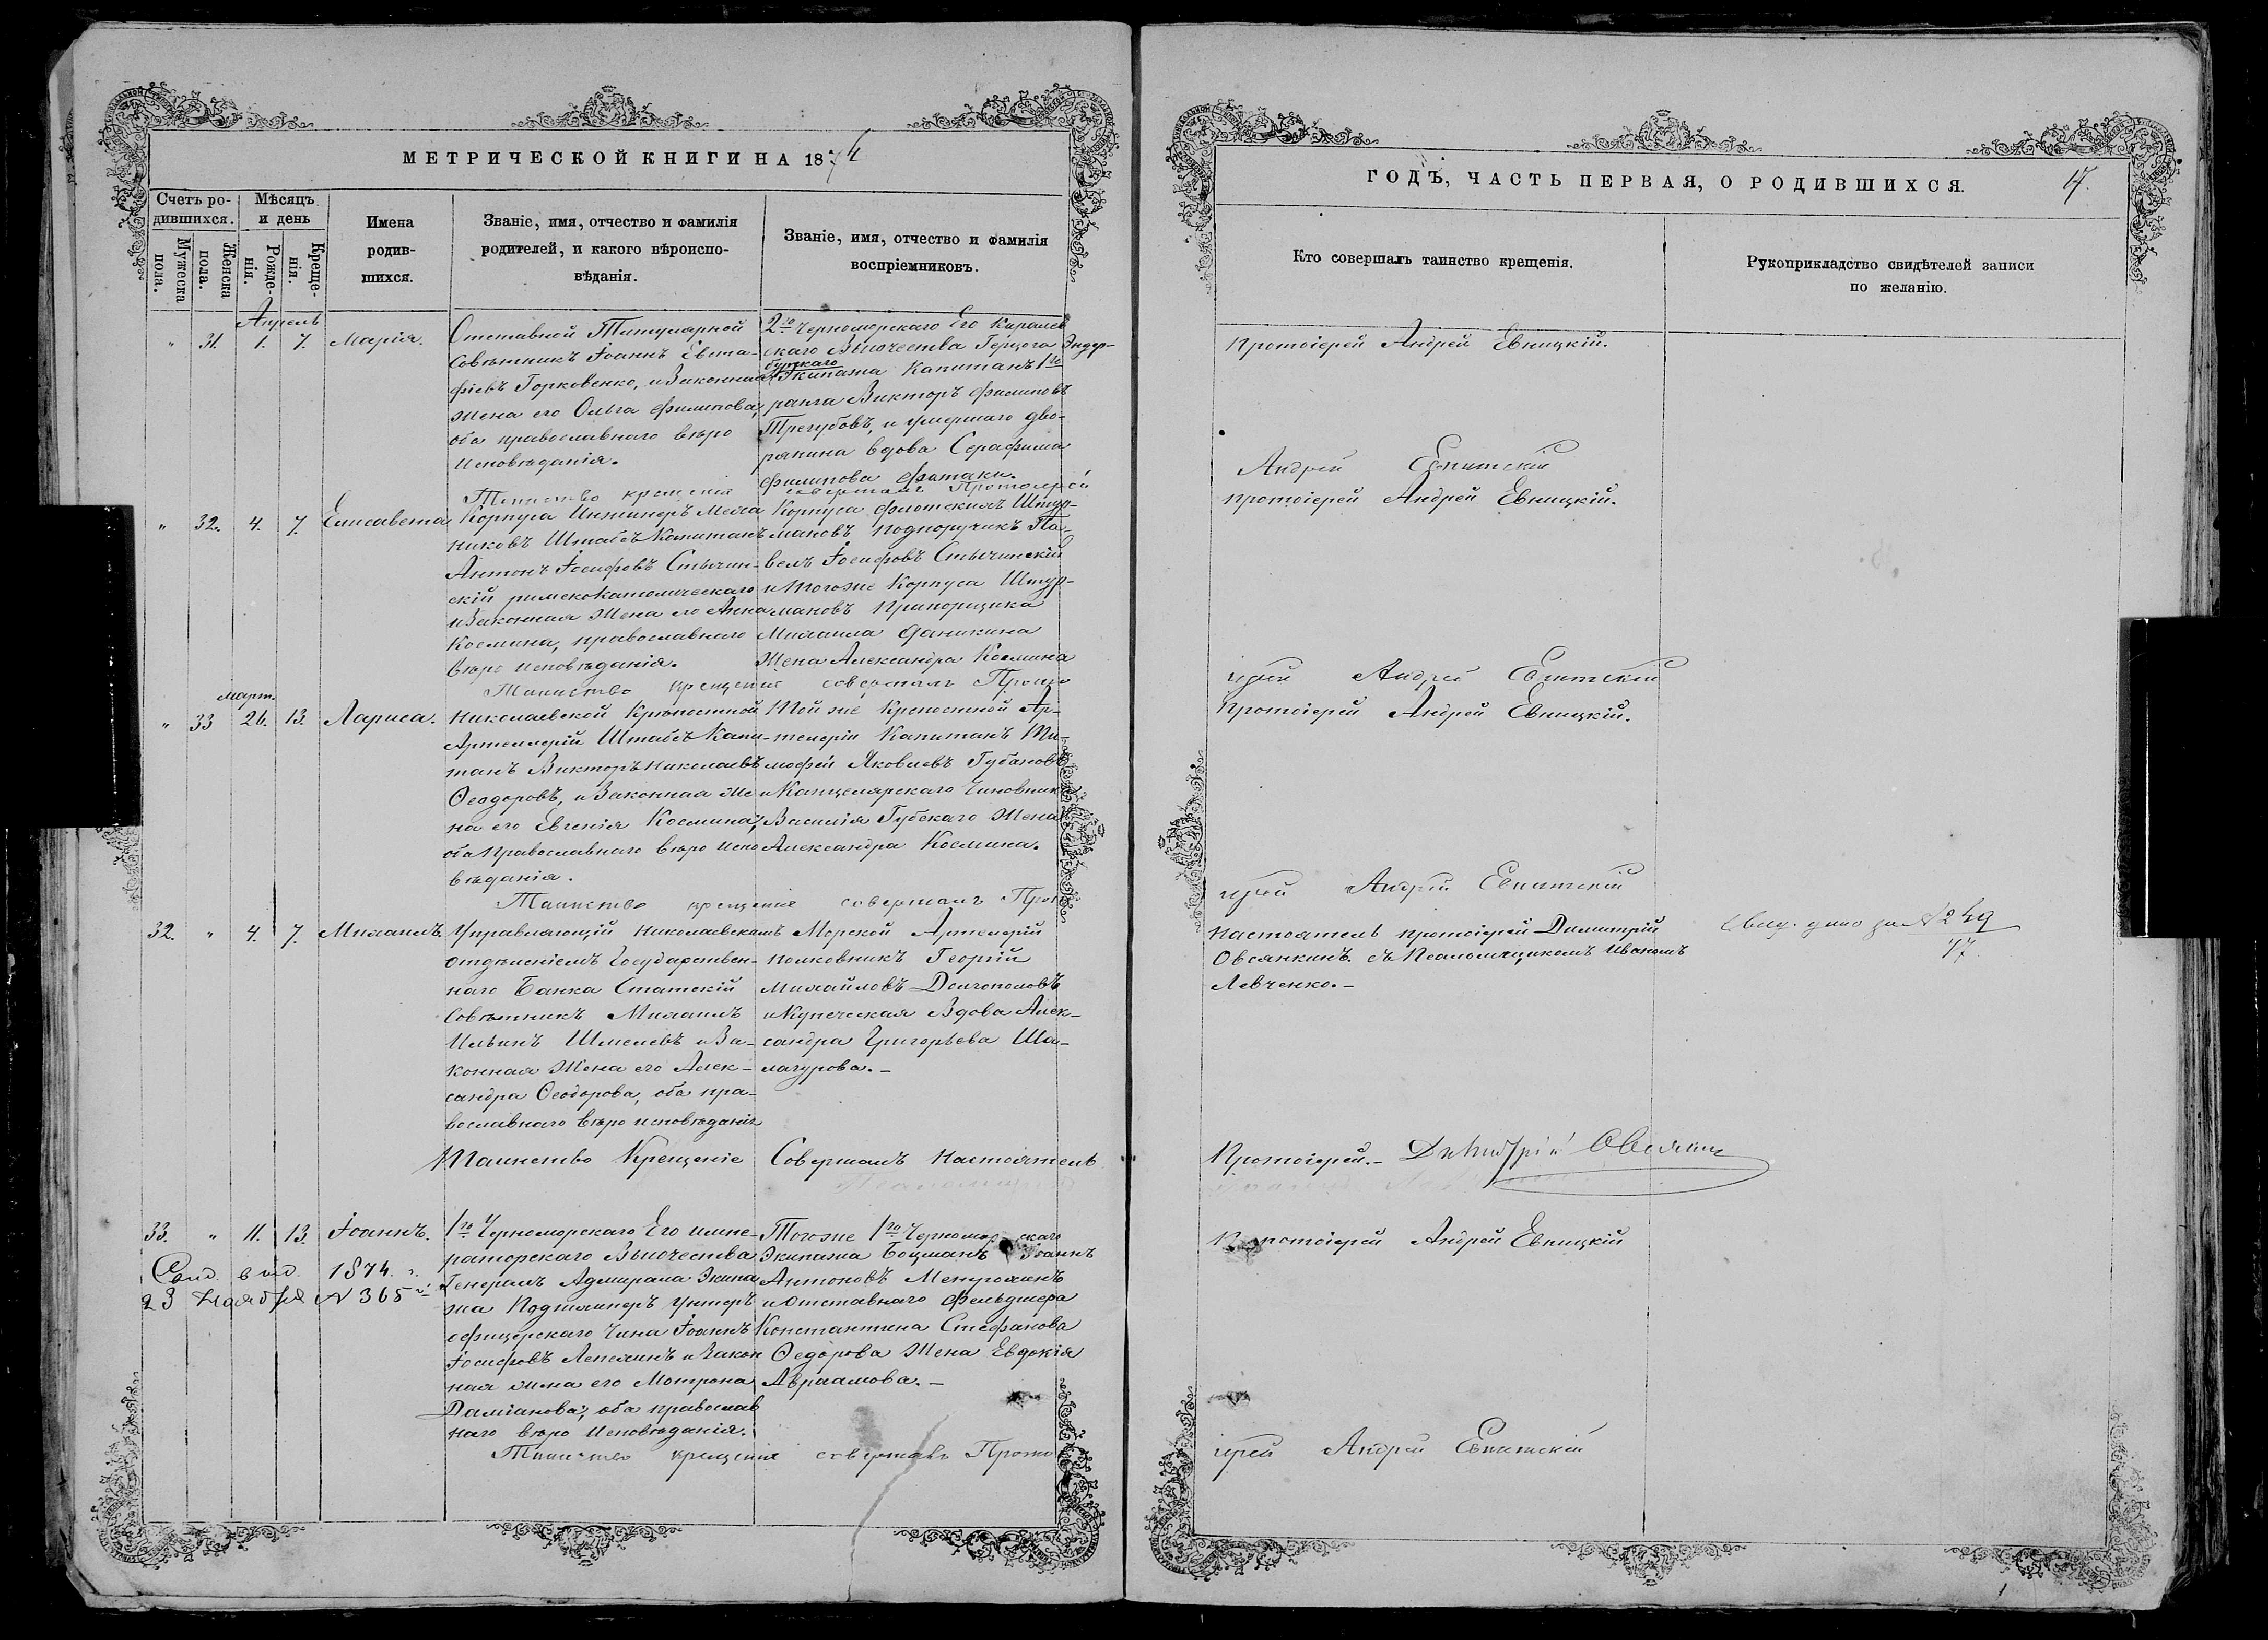 МЕТРИЧЕСКОЙ КНИГИ НА 1874
Счетъ родившихся.
Мѣсяцъ и день
Мужеска пола.
Женска пола.
Рожденія.
Крещенія.
Имена
родив-
шихся.
Званіе, имя, отчество и фамилія
родителей, и какого вѣроиспо-
вѣданія.
Званіе, имя, отчество и фамилія
воспріемниковъ.
Апрель
" 31. 1. 7. Марія.
Отставной Титулярной
Совѣтникъ Іоаннъ Евста-
фіевъ Горковенко, и Законная
жена его Ольга Филипова,
оба православнаго вѣро
исповѣданія.
2го Черноморскаго Его Королев
скаго Высочества Герцога Эндер-
бугскаго
Экипажа Капитанъ 1го
ранга Викторъ Филиповъ
Трегубовъ, и умершаго дво-
рянина вдова Серафима
Филипова
Таинство крещенія совершалъ Протоіерей
" 32. 4. 7. Елисавета
Корпуса Инжинеръ Меха
никовъ Штабсъ Капитанъ
Антонъ Іосифовъ Стычин-
скій римскокатолическаго
и Законная жена его Анна
Космина, православнаго
вѣро исповѣданія.
Корпуса Флотскихъ Штур-
мановъ подпоручикъ Па-
велъ Іосифовъ Стычинскій
и тогоже Корпуса Штур-
мановъ Прапорщика
Михаила Даникина
жена Александра Космина
Таинство крещенія совершалъ Прото
март.
" 33 26. 13. Лариса.
Николаевской Крѣпостной
Артиллеріи Штабсъ Капи-
танъ Викторъ Николаевъ
Ѳеодоровъ, и Законная же
на его Евгенія Космина,
оба Православнаго вѣро испо
вѣданія.
Той же Крепостной Ар-
тилеріи Капитанъ Ти-
мофей Яковлевъ Губановъ
и Канцелярскаго Чиновника
Василія Губскаго жена
Александра Космина.
Таинство крещенія совершалъ Прото
32. " 4. 7. Михаилъ.
Управляющій Николаевскимъ
отдѣленіемъ Государствен-
наго Банка Статскій
Совѣтникъ Михаилъ
Ильинъ Шмелевъ и За-
конная жена его Алек-
сандра Ѳеодорова, оба пра-
вославнаго вѣро исповѣданія
Морской Артилеріи
полковникъ Георгій
Михайловъ Долгополовъ
и Купеческая Вдова Алек-
сандра Григорьева Ша-
лагурова.-
Таинство Крещеніе Совершалъ Настоятель
33. " 11. 13. Іоаннъ.
Свид. выд. 1874 г.
23 Ноября № 365
1го Черноморскаго Его импе-
раторскаго Высочества
Генералъ Адмирала Экипа
жа Подшхиперъ унтеръ
офицерскаго Чина Іоаннъ
Іосифовъ Лепехинъ и Закон
ная жена его Мотрона
Даміанова, оба православ
наго вѣро исповѣданія.
Тогоже 1го Черноморскаго
Экипажа Боцманъ Іоаннъ
Антоновъ
и Отставнаго Фельдшера
Константина Стефанова
Ѳедорова жена Евдокія
Авраамова.-
Таинство крещенія совершалъ Прото
ГОДЪ, ЧАСТЬ ПЕРВАЯ, О РОДИВШИХСЯ. 17.
Кто совершалъ таинство крещенія.
Рукоприкладство свидѣтелей записи
по желанію.
Протоіерей Андрей Евницкій.
Андрей Евницкій
протоіерей Андрей Евницкій.
іерей Андрей Евницкій
Протоіерей Андрей Евницкій.
іерей Андрей Евницкій
Настоятель протоіерей Димитрій
Овсянкинъ. съ Псаломщикомъ Иваномъ
Левченко.-
Свид. дано за № 249
77
Протоіерей.- Димитрій Овсянкинъ
Протоіерей Андрей Евницкій
іерей Андрей Евницкій